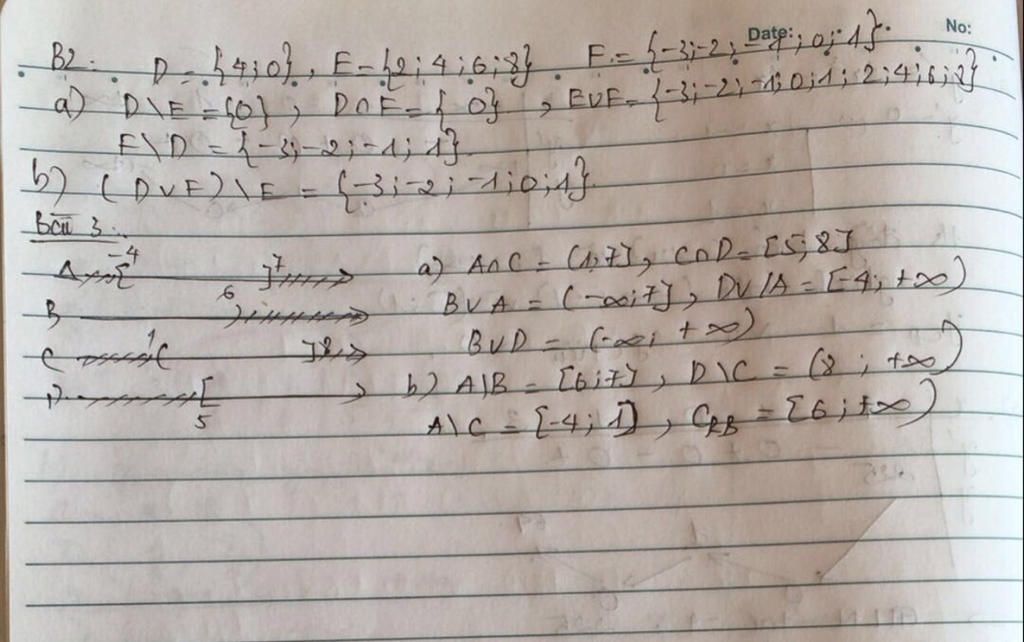 Date: No:
B2. D = {4;0}, E = {2;4;6;8} F = {-3;-2;-1;0;1}.
a) D\E = {0}, D∩F = {0}, E∪F = {-3;-2;-1;0;1;2;4;6;8}
F\D = {-3;-2;-1;1}
b) (D∪F)\E = {-3;-2;-1;0;1}.
Bài 3.
A -4 [ ] 7 a) A∩C = (1;7], C∩D = [5;8]
B 6 ) B∪A = (-∞;7], D∪A = [-4;+∞)
C 1 ( ] 8 B∪D = (-∞;+∞)
D [ 5 b) A\B = [6;7], D\C = (8;+∞)
A\C = [-4;1], CRB = [6;+∞)